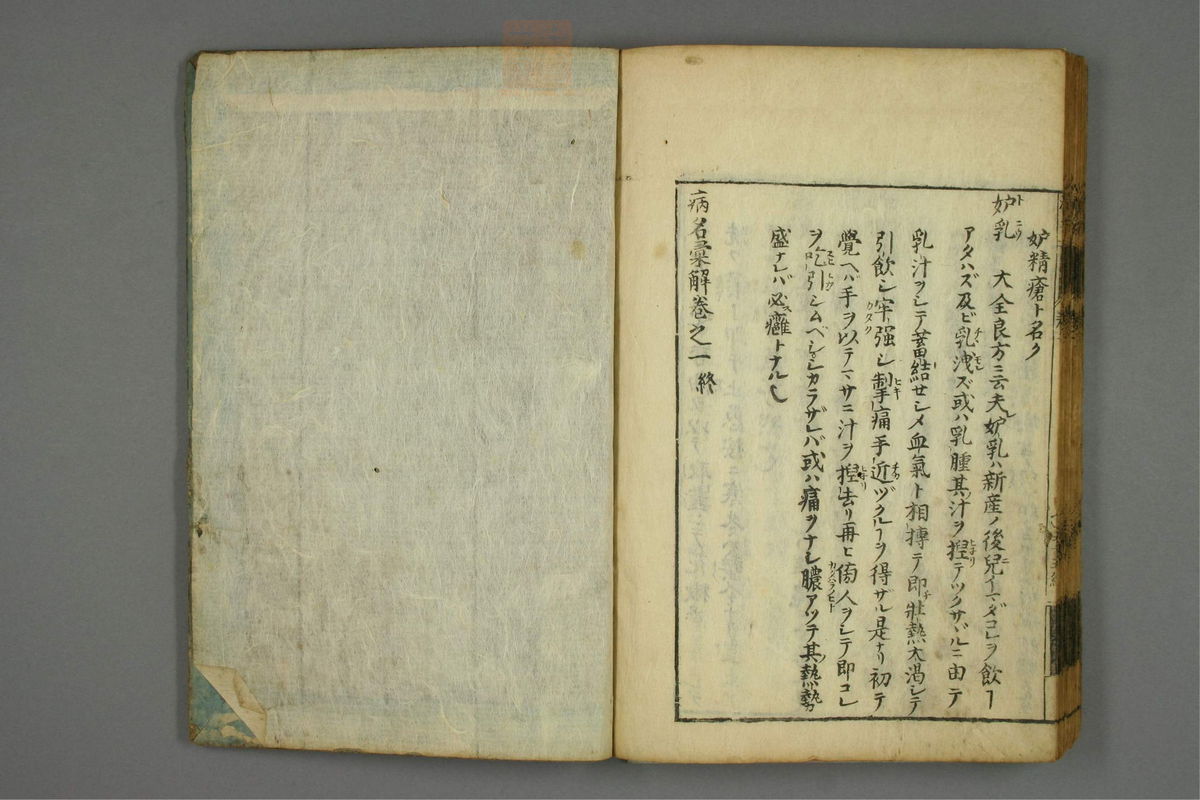 妒精瘡ト名ク
妒乳 大全良方ニ云夫妒乳ハ新産ノ後兒イマダコレヲ飲ヿ
アタハズ及ビ乳洩ズ或ハ乳腫其汁ヲ捏テツクサヾルニ由テ
乳汁ヲシテ蓄結セシメ血氣ト相搏テ即壯熱大渇シテ
引飲シ牢强シ掣痛手近ヅクルヿヲ得ザル是ナリ初テ
覺ヘバ手ヲ以テマサニ汁ヲ捏去リ再ヒ傍人ヲシテ即コレ
ヲ吮引シムベシシカラザレバ或ハ痛ヲナシ膿アツテ其熱勢
盛ナレバ必癰トナル也
病名彙解巻之一終